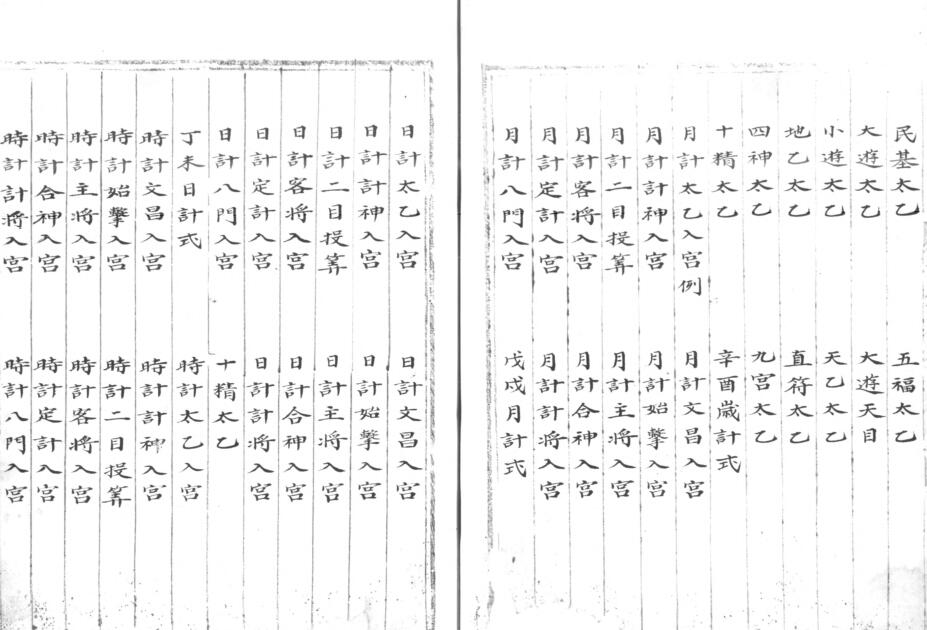 民基太乙 五福太乙
大遊太乙 大遊天目
小遊太乙 天乙太乙
地乙太乙 直符太乙
四神太乙 九宮太乙
十精太乙 辛酉歲計式
月計太乙入宮例 月計文昌入宮
月計計神入宮 月計始擊入宮
月計二目投筭 月計主將入宮
月計客將入宮 月計合神入宮
月計定計入宮 月計計將入宮
月計八門入宮 戊戌月計式
日計太乙入宮 日計文昌入宮
日計計神入宮 日計始擊入宮
日計二目投筭 日計主將入宮
日計客將入宮 日計合神入宮
日計定計入宮 日計計將入宮
日計八門入宮 十精太乙
丁未日計式 時計太乙入宮
時計文昌入宮 時計計神入宮
時計始擊入宮 時計二目投筭
時計主將入宮 時計客將入宮
時計合神入宮 時計定計入宮
時計計將入宮 時計八門入宮